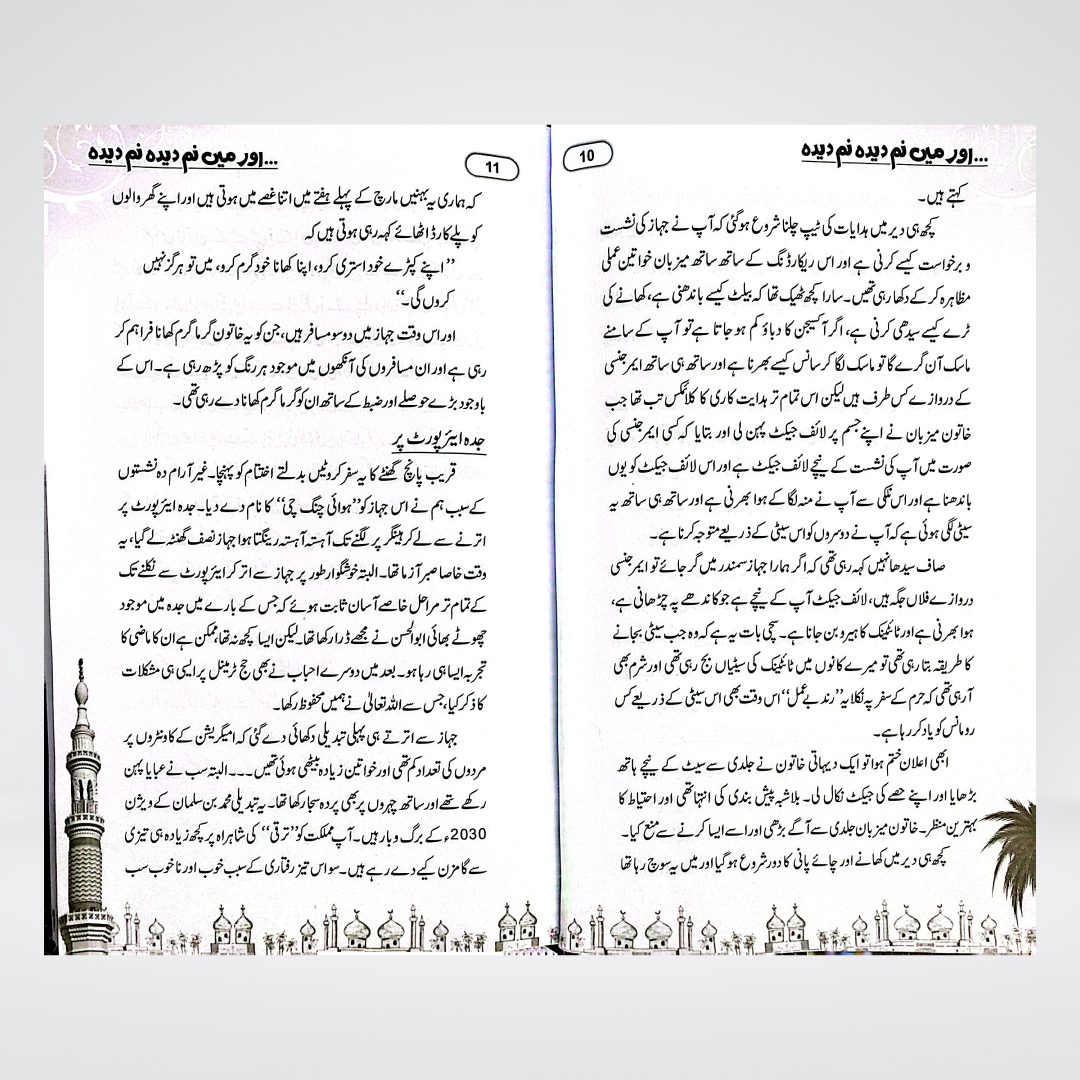 ...اور میں نم دیدہ نم دیدہ
10
کہتے ہیں۔
کچھ ہی دیر میں ہدایات کی ٹیپ چلنا شروع ہوگئی کہ آپ نے جہاز کی نشست
و برخواست کیسے کرنی ہے اور اس ریکارڈنگ کے ساتھ ساتھ میزبان خواتین عملی
مظاہرہ کر کے دکھا رہی تھیں۔ سارا کچھ ٹھیک تھا کہ بیلٹ کیسے باندھنی ہے، کھانے کی
ٹرے کیسے سیدھی کرنی ہے، اگر آکسیجن کا دباؤ کم ہو جاتا ہے تو آپ کے سامنے
ماسک آن گرے گا تو ماسک لگا کر سانس کیسے بھرنا ہے اور ساتھ ہی ساتھ ایمرجنسی
کے دروازے کس طرف ہیں لیکن اس تمام تر ہدایت کاری کا کلائمکس تب تھا جب
خاتون میزبان نے اپنے جسم پر لائف جیکٹ پہن لی اور بتایا کہ کسی ایمرجنسی کی
صورت میں آپ کی نشست کے نیچے لائف جیکٹ ہے اور اس لائف جیکٹ کو یوں
باندھنا ہے اور اس نلکی سے آپ نے منہ لگا کے ہوا بھرنی ہے اور ساتھ ہی ساتھ یہ
سیٹی لگی ہوئی ہے کہ آپ نے دوسروں کو اس سیٹی کے ذریعے متوجہ کرنا ہے۔
صاف سیدھا نہیں کہہ رہی تھی کہ اگر ہمارا جہاز سمندر میں گر جائے تو ایمرجنسی
دروازے فلاں جگہ ہیں، لائف جیکٹ آپ کے نیچے ہے جو کاندھے پہ چڑھانی ہے،
ہوا بھرنی ہے اور ٹائٹینک کا ہیرو بن جانا ہے۔ سچی بات یہ ہے کہ وہ جب سیٹی بجانے
کا طریقہ بتا رہی تھی تو میرے کانوں میں ٹائٹینک کی سیٹیاں بج رہی تھی اور شرم بھی
آرہی تھی کہ حرم کے سفر پہ نکلا یہ ”رند بے عمل“ اس وقت بھی اس سیٹی کے ذریعے کس
رومانس کو یاد کر رہا ہے۔
ابھی اعلان ختم ہوا تو ایک دیہاتی خاتون نے جلدی سے سیٹ کے نیچے ہاتھ
بڑھایا اور اپنے حصے کی جیکٹ نکال لی۔ بلاشبہ پیش بندی کی انتہا تھی اور احتیاط کا
بہترین منظر۔ خاتون میزبان جلدی سے آگے بڑھی اور اسے ایسا کرنے سے منع کیا۔
کچھ ہی دیر میں کھانے اور چائے پانی کا دور شروع ہو گیا اور میں یہ سوچ رہا تھا
...اور میں نم دیدہ نم دیدہ
11
کہ ہماری یہ بہنیں مارچ کے پہلے ہفتے میں اتنا غصے میں ہوتی ہیں اور اپنے گھر والوں
کو پلے کارڈ اٹھائے کہہ رہی ہوتی ہیں کہ
”اپنے کپڑے خود استری کرو، اپنا کھانا خود گرم کرو، میں تو ہرگز نہیں
کروں گی۔“
اور اس وقت جہاز میں دو سو مسافر ہیں، جن کو یہ خاتون گرما گرم کھانا فراہم کر
رہی ہے اور ان مسافروں کی آنکھوں میں موجود ہر رنگ کو پڑھ رہی ہے۔ اس کے
باوجود بڑے حوصلے اور ضبط کے ساتھ ان کو گرما گرم کھانا دے رہی تھی۔
جدہ ایئر پورٹ پر
قریب پانچ گھنٹے کا یہ سفر کروٹیں بدلتے اختتام کو پہنچا۔ غیر آرام دہ نشستوں
کے سبب ہم نے اس جہاز کو ”ہوائی چنگ چی“ کا نام دے دیا۔ جدہ ایئر پورٹ پر
اترنے سے لے کر ہینگر پر لگنے تک آہستہ آہستہ رینگتا ہوا جہاز نصف گھنٹہ لے گیا، یہ
وقت خاصا صبر آزما تھا۔ البتہ خوشگوار طور پر جہاز سے اتر کر ایئر پورٹ سے نکلنے تک
کے تمام تر مراحل خاصے آسان ثابت ہوئے کہ جس کے بارے میں جدہ میں موجود
چھوٹے بھائی ابوالحسن نے مجھے ڈرا رکھا تھا۔ لیکن ایسا کچھ نہ تھا، ممکن ہے ان کا ماضی کا
تجربہ ایسا ہی رہا ہو۔ بعد میں دوسرے احباب نے بھی حج ٹرمینل پر ایسی ہی مشکلات
کا ذکر کیا، جس سے اللہ تعالیٰ نے ہمیں محفوظ رکھا۔
جہاز سے اترتے ہی پہلی تبدیلی دکھائی دے گئی کہ امیگریشن کے کاونٹروں پر
مردوں کی تعداد کم تھی اور خواتین زیادہ بیٹھی ہوئی تھیں ۔۔۔ البتہ سب نے عبایا پہن
رکھے تھے اور ساتھ چہروں پر بھی پردہ سجا رکھا تھا۔ یہ تبدیلی محمد بن سلمان کے ویژن
2030ء کے برگ و بار ہیں۔ آپ مملکت کو ”ترقی“ کی شاہراہ پر کچھ زیادہ ہی تیزی
سے گامزن کیے دے رہے ہیں۔ سو اس تیز رفتاری کے سبب خوب اور ناخوب سب